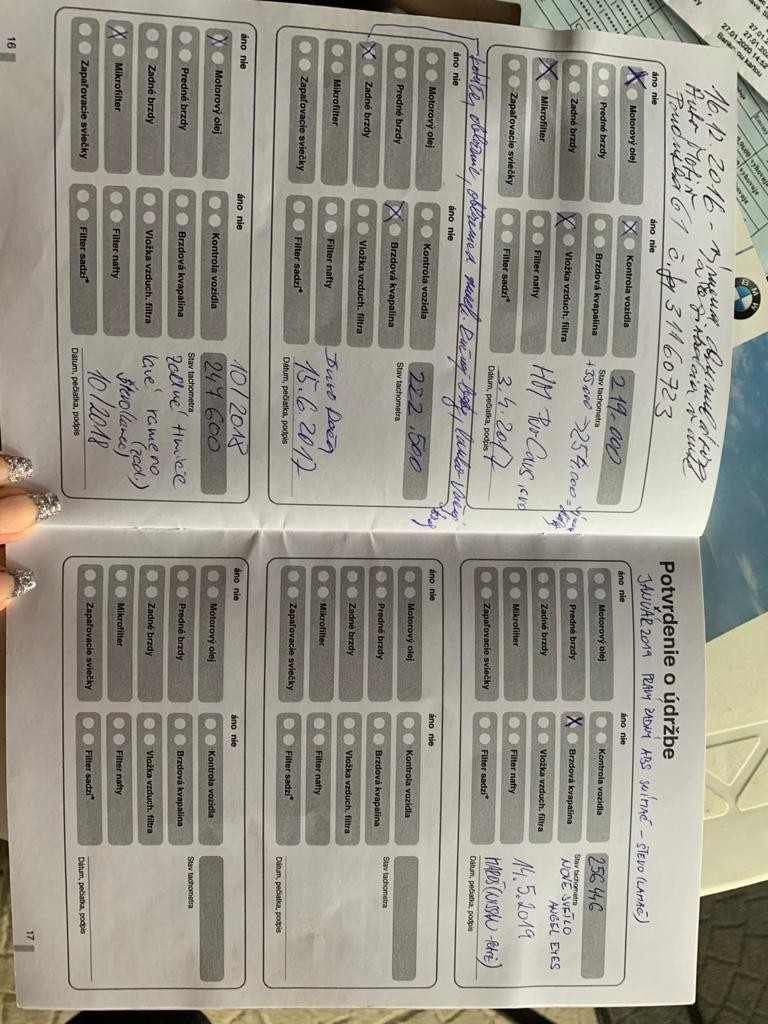 16.12.2016 - výmena
Auto
č. 31160723
áno nie
Motorový olej
Predné brzdy
Zadné brzdy
Mikrofilter
Zapaľovacie sviečky
áno nie
Kontrola vozidla
Brzdová kvapalina
Vložka vzduch. filtra
Filter nafty
Filter sadzí*
219.000
Stav tachometra
3.4.2017
Dátum, pečiatka, podpis
áno nie
Motorový olej
Predné brzdy
Zadné brzdy
Mikrofilter
Zapaľovacie sviečky
áno nie
Kontrola vozidla
Brzdová kvapalina
Vložka vzduch. filtra
Filter nafty
Filter sadzí*
222.500
Stav tachometra
15.6.2017
Dátum, pečiatka, podpis
áno nie
Motorový olej
Predné brzdy
Zadné brzdy
Mikrofilter
Zapaľovacie sviečky
áno nie
Kontrola vozidla
Brzdová kvapalina
Vložka vzduch. filtra
Filter nafty
Filter sadzí*
10/2018
247600
Stav tachometra
zadné tlmiče
ľavé rameno
(zad.)
10/2018
Dátum, pečiatka, podpis
16
Potvrdenie o údržbe
JANUÁR 2019 PRAVÝ ZADNÝ ABS SNÍMAČ - ŠTEVO (LAMAČ)
áno nie
Motorový olej
Predné brzdy
Zadné brzdy
Mikrofilter
Zapaľovacie sviečky
áno nie
Kontrola vozidla
Brzdová kvapalina
Vložka vzduch. filtra
Filter nafty
Filter sadzí*
256446
Stav tachometra
NOVÉ SVETLO
ANGEL EYES
14.5.2019
Dátum, pečiatka, podpis
áno nie
Motorový olej
Predné brzdy
Zadné brzdy
Mikrofilter
Zapaľovacie sviečky
áno nie
Kontrola vozidla
Brzdová kvapalina
Vložka vzduch. filtra
Filter nafty
Filter sadzí*
Stav tachometra
Dátum, pečiatka, podpis
áno nie
Motorový olej
Predné brzdy
Zadné brzdy
Mikrofilter
Zapaľovacie sviečky
áno nie
Kontrola vozidla
Brzdová kvapalina
Vložka vzduch. filtra
Filter nafty
Filter sadzí*
Stav tachometra
Dátum, pečiatka, podpis
17
BMW
27.01.2020 14:52